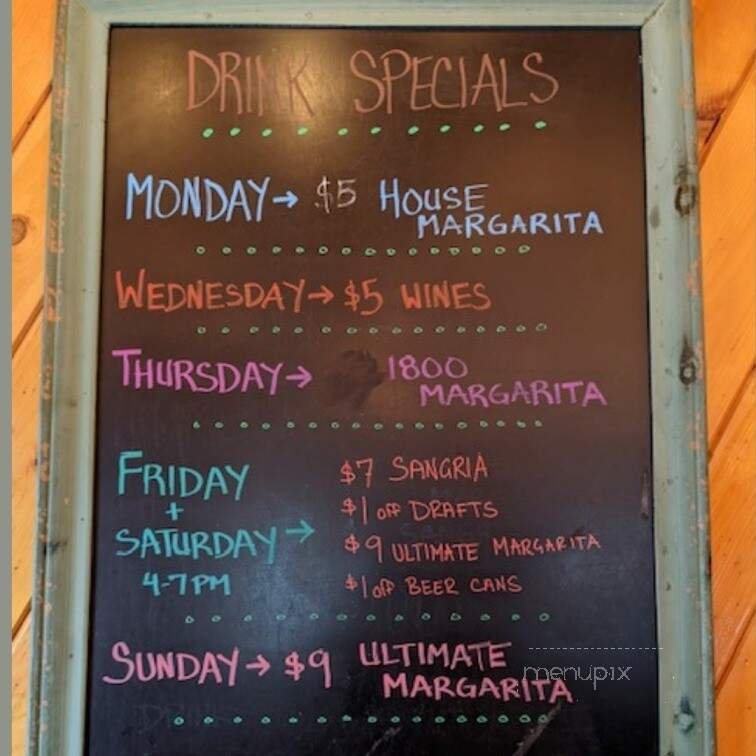 DRINK SPECIALS
MONDAY → $5 HOUSE
MARGARITA
WEDNESDAY → $5 WINES
THURSDAY → 1800
MARGARITA
FRIDAY
+
SATURDAY →
4-7PM
$7 SANGRIA
$1 off DRAFTS
$9 ULTIMATE MARGARITA
$1 off BEER CANS
SUNDAY → $9 ULTIMATE
MARGARITA
menupix